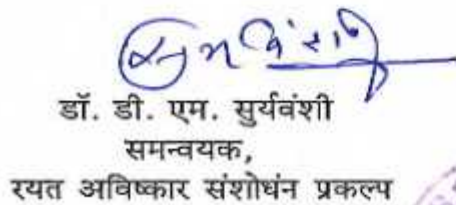 डॉ. डी. एम. सुर्यवंशी
समन्वयक,
रयत अविष्कार संशोधंन प्रकल्प